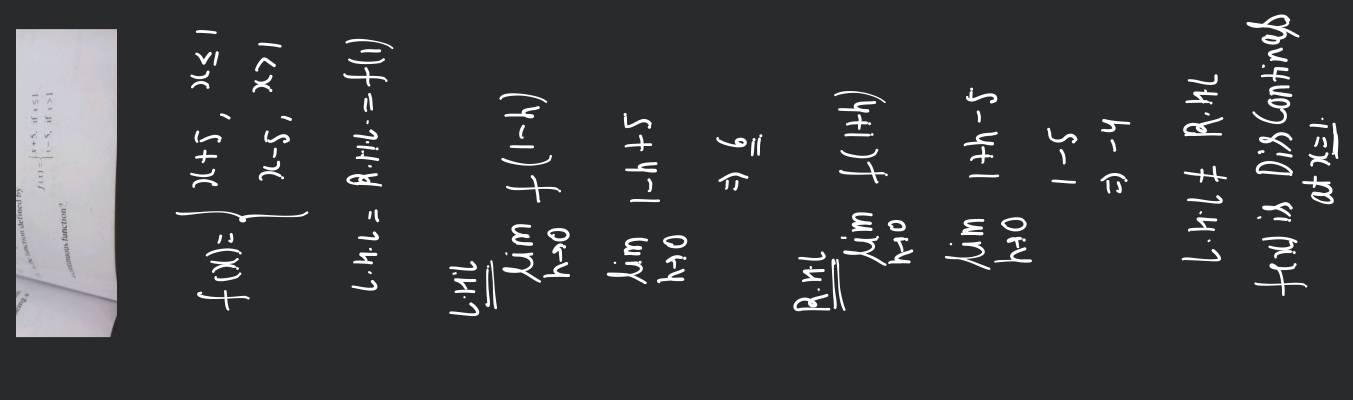 function defined by
f(x) = { x+5, if x ≤ 1
x-5, if x > 1
continuous function?
f(x) = { x+5, x ≤ 1
x-5, x>1
L.H.L = R.H.L. = f(1)
L.H.L
lim h→0 f(1-h)
lim h→0 1-h+5
⇒ 6
R.H.L
lim h→0 f(1+h)
lim h→0 1+h-5
1-5
⇒ -4
L.H.L ≠ R.H.L
f(x) is DisContinuous
at x=1.